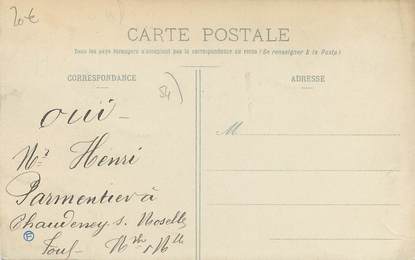 20€
CARTE POSTALE
Dans les pays étrangers n'acceptant pas la correspondance au verso (Se renseigner à la Poste)
CORRESPONDANCE
ADRESSE
54)
oui -
Mr Henri
Parmentier à
Chaudeney s. Moselle
Toul -
M